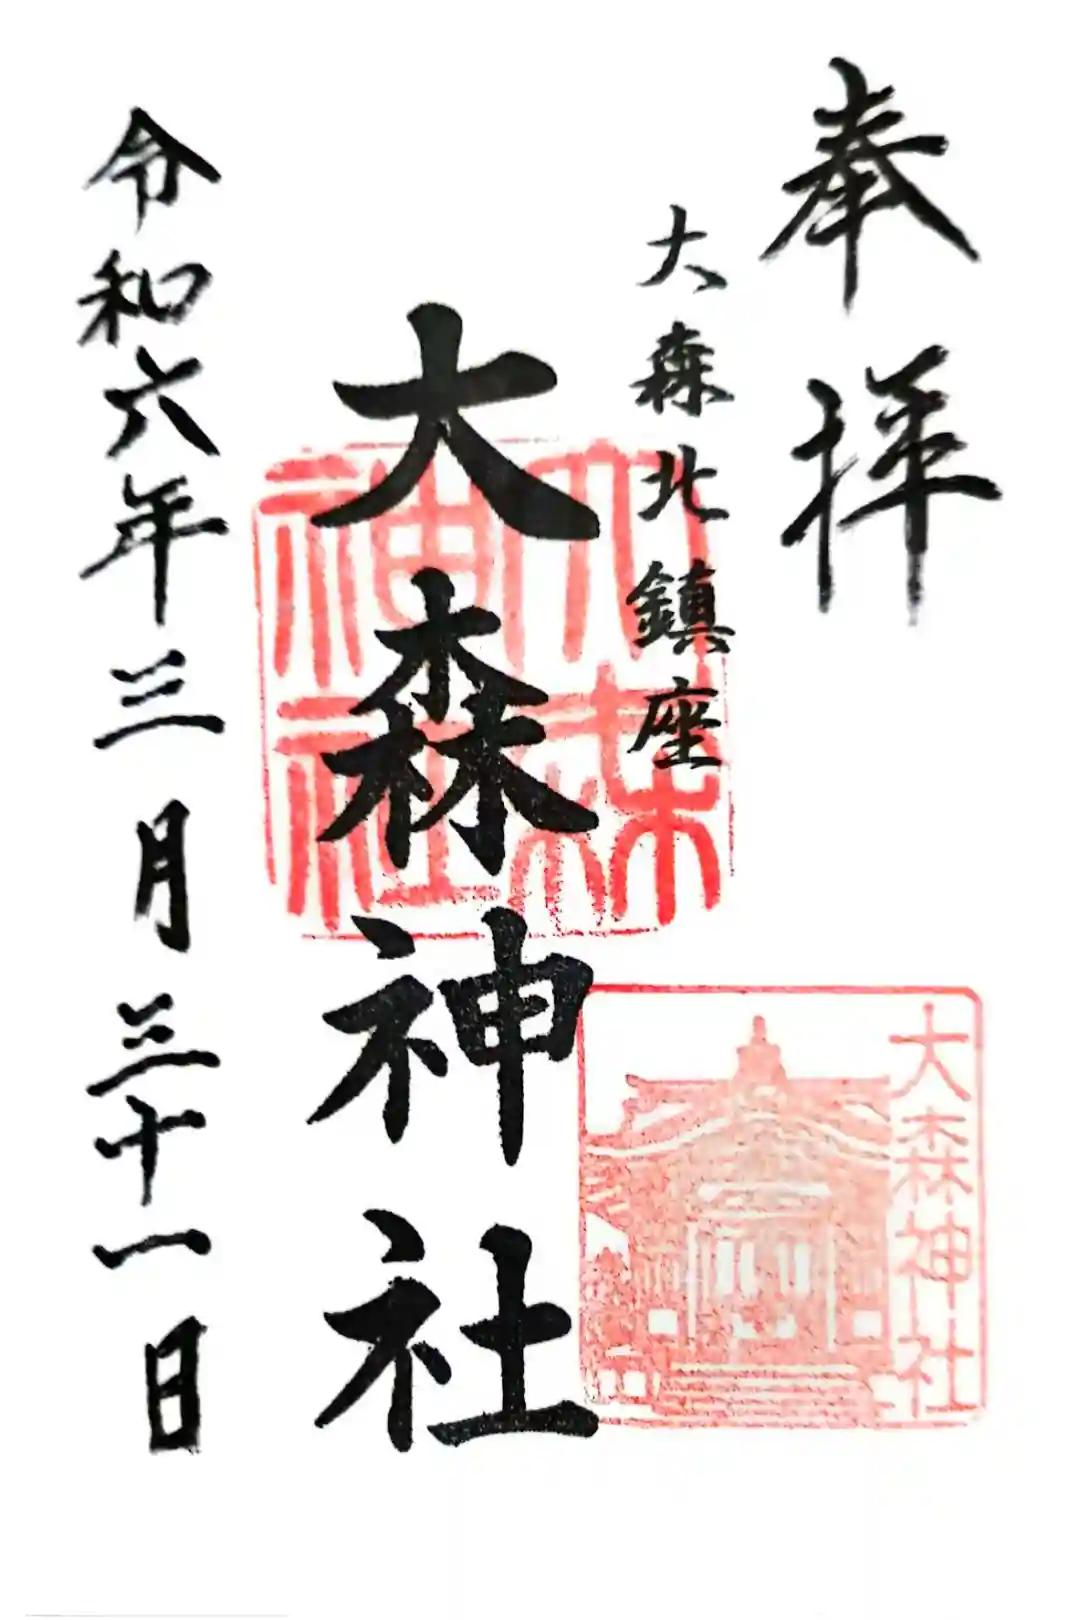 奉拝
大森北鎮座
大森神社
令和六年三月三十一日
大森神社
大森神社